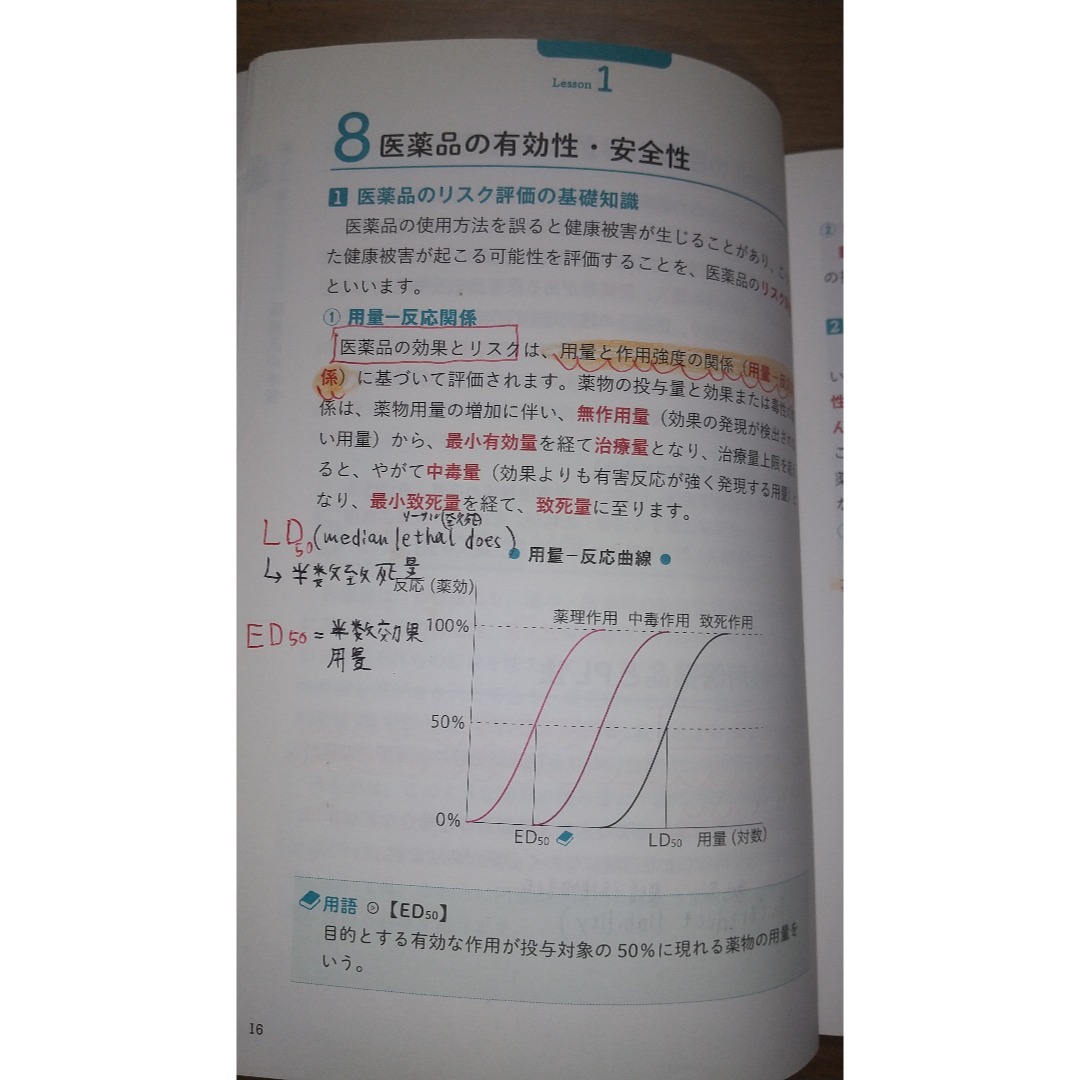 Lesson 1
8 医薬品の有効性・安全性
1 医薬品のリスク評価の基礎知識
医薬品の使用方法を誤ると健康被害が生じることがあり、こう
た健康被害が起こる可能性を評価することを、医薬品のリスク
といいます。
① 用量−反応関係
医薬品の効果とリスクは、用量と作用強度の関係（用量−反応
係）に基づいて評価されます。薬物の投与量と効果または毒性の
係は、薬物用量の増加に伴い、無作用量（効果の発現が検出され
い用量）から、最小有効量を経て治療量となり、治療量上限を
ると、やがて中毒量（効果よりも有害反応が強く発現する用量）と
なり、最小致死量を経て、致死量に至ります。
リーサル(致死)
LD50(median lethal does)
↳ 半数致死量
● 用量−反応曲線 ●
反応（薬効）
ED50 = 半数効果
用量
薬理作用 中毒作用 致死作用
100%
50%
0%
ED50 LD50 用量（対数）
用語 【ED50】
目的とする有効な作用が投与対象の50%に現れる薬物の用量を
いう。
16
2